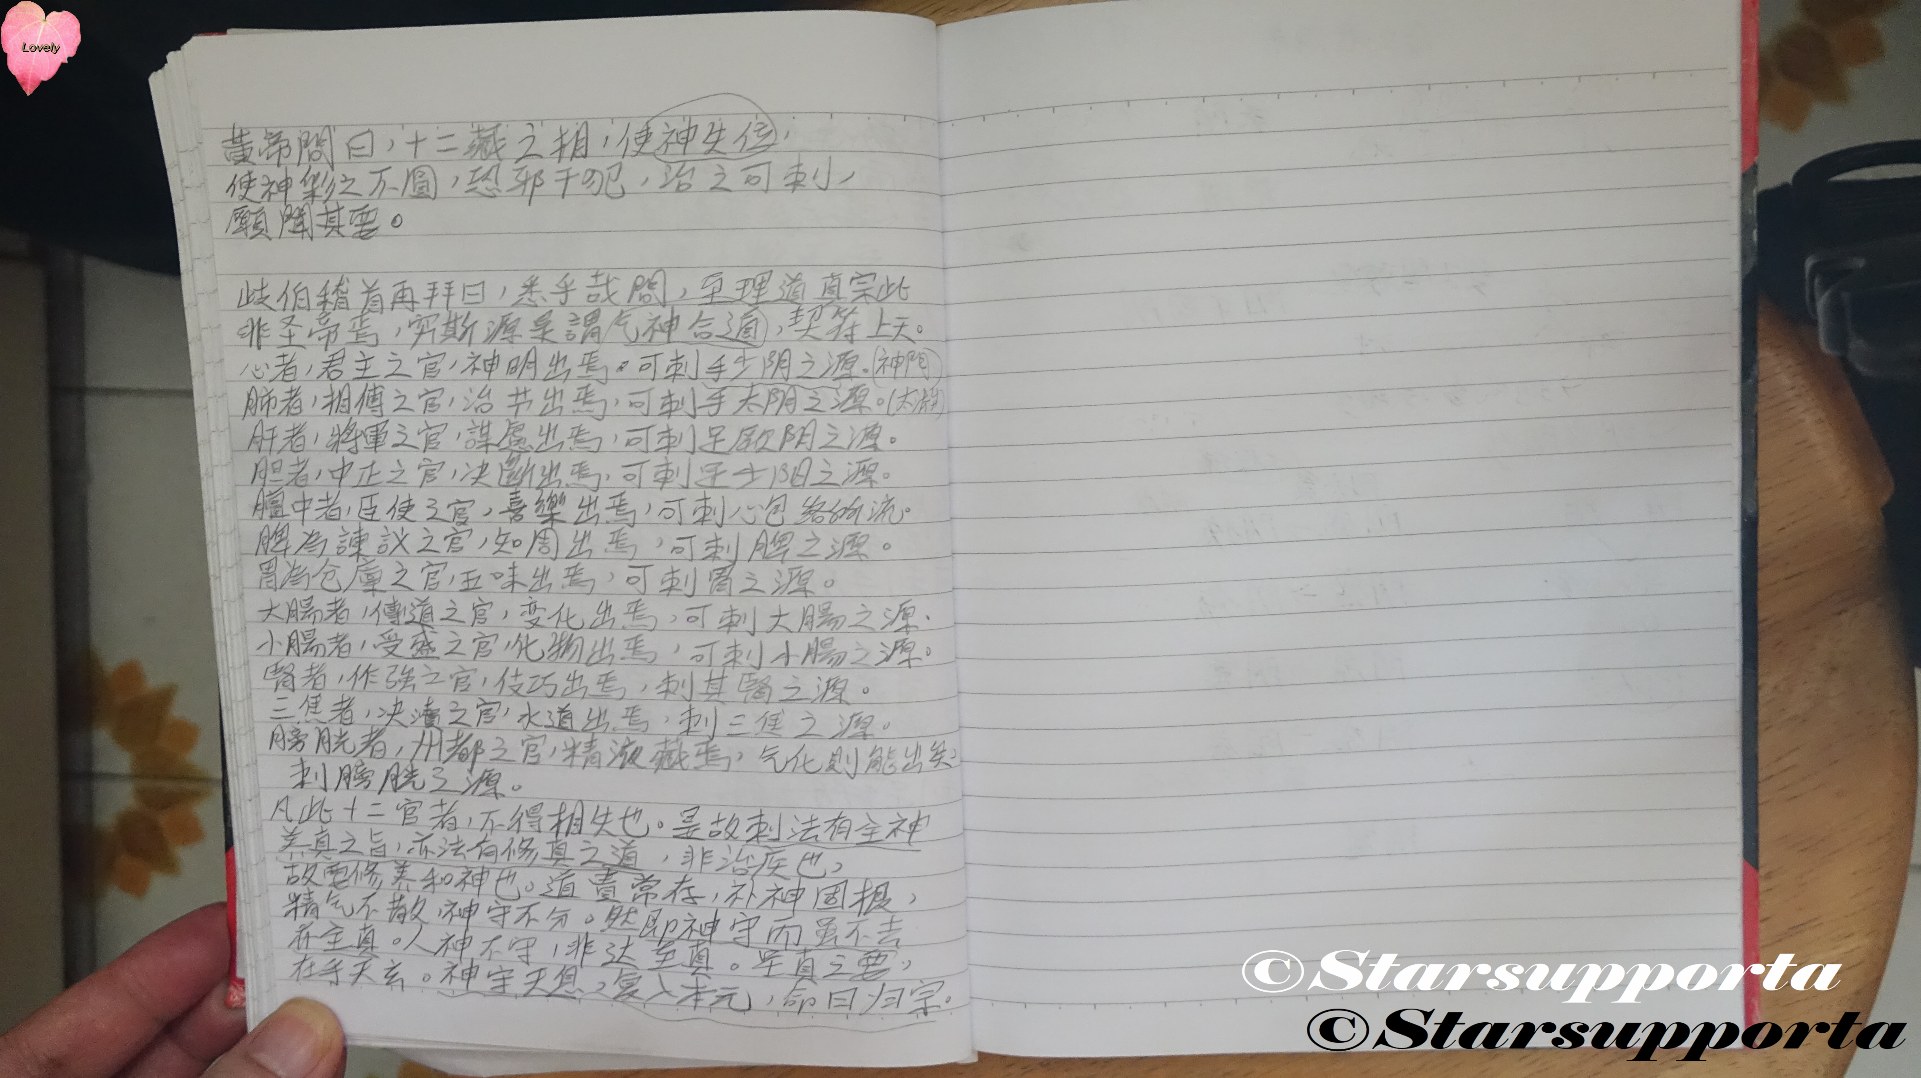 Lovely
黃帝問曰，十二藏之相，使神失位，
使神彩之不圓，恐邪干犯，治之可刺，
願聞其要。
歧伯稽首再拜曰，悉乎哉問，至理道真宗此
非圣帝焉，穷斯源是謂气神合道，契符上天。
心者，君主之官，神明出焉。可刺手少阴之源.(神門)
肺者，相傅之官，治节出焉，可刺手太阴之源。(太渊)
肝者，將軍之官，謀慮出焉，可刺足厥阴之源。
胆者，中正之官，决斷出焉，可刺足少阳之源。
膻中者，臣使之官，喜樂出焉，可刺心包絡所流.
脾為諫议之官，知周出焉，可刺脾之源。
胃為仓廩之官，五味出焉，可刺胃之源。
大腸者，傳道之官，变化出焉，可刺大腸之源.
小腸者，受盛之官，化物出焉，可刺小腸之源。
腎者，作強之官，伎巧出焉，刺其腎之源。
三焦者，决瀆之官，水道出焉，刺三焦之源。
膀胱者，州都之官，精液藏焉，气化則能出矣，
刺膀胱之源。
凡此十二官者，不得相失也。是故刺法有全神
养真之旨，亦法有修真之道，非治疾也，
故要修养和神也。道貴常存，补神固根，
精气不散，神守不分。然即神守而虽不去
亦全真。人神不守，非达至真。至真之要，
在乎天玄。神守天息，复入本元，命曰归宗。
©Starsupporta
©Starsupporta